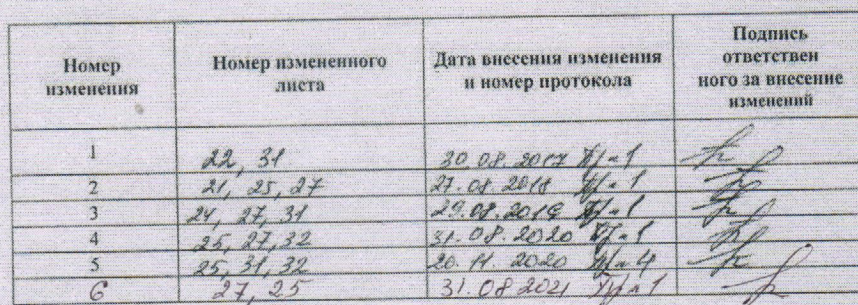 Номер изменения Номер измененного листа Дата внесения изменения и номер протокола Подпись ответствен ного за внесение изменений
1 22, 31 30.08.2017 Пр №1
2 21, 25, 27 27.08.2018 Пр №1
3 24, 27, 31 29.08.2019 Пр №1
4 25, 27, 32 31.08.2020 Пр №1
5 25, 31, 32 20.11.2020 Пр №4
6 27, 25 31.08 2021 Пр №1